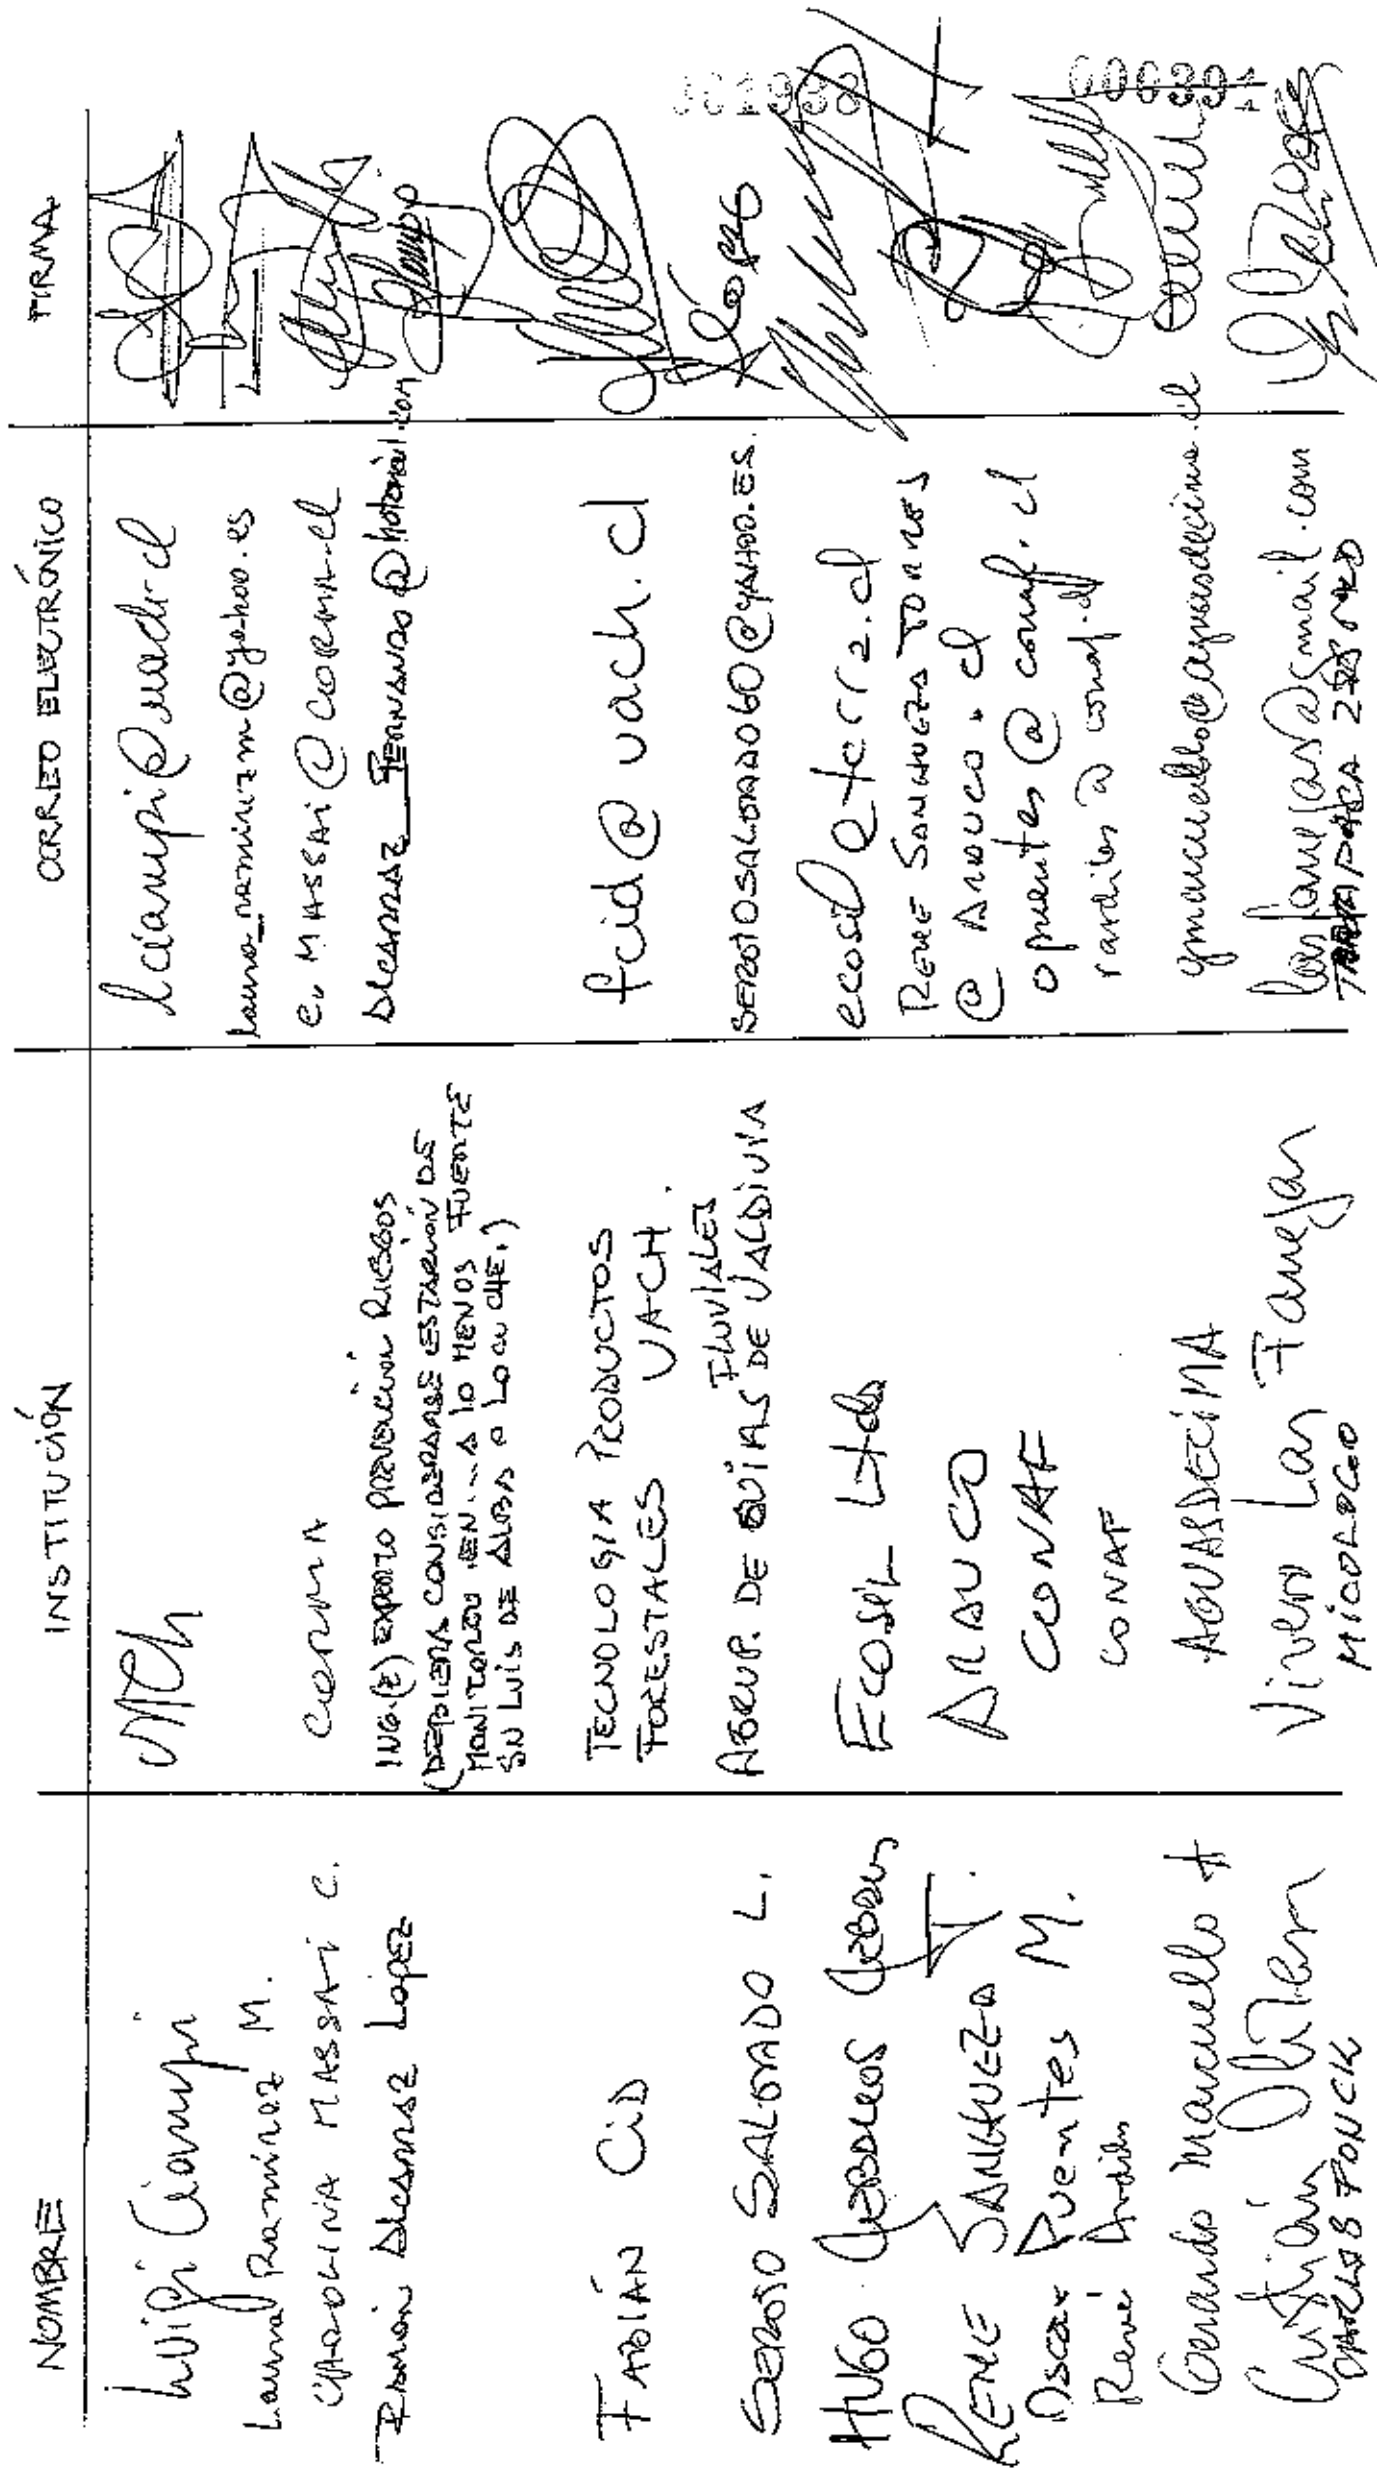 NOMBRE INSTITUCIÓN CORREO ELECTRÓNICO FIRMA
Luigi Ciampi UACh lciampi@uach.cl
Laura Ramírez M. laura_ramirezm@yahoo.es
CAROLINA MASSAI C. CORMA C. MASSAI@CORMA.CL
Alcarraz López ING.(E) EXPERTO PREVENCIÓN RIESGOS Alcarraz_Fernando@hotmail.com
(DEBIERA CONSIDERARSE ESTACIÓN DE
MONITOREO EN... A LO MENOS FUENTE
SN LUIS DE ALBA o LONCOCHE.)
FABIÁN CID TECNOLOGIA PRODUCTOS fcid@uach.cl
FORESTALES UACH.
SERGIO SALGADO L. AGRUP. DE GUÍAS FLUVIALES DE VALDIVIA SERGIOSALGADO60@YAHOO.ES.
HUGO ECOSIL Ltda ecosil@terra.cl
RENE SANHUEZA T. ARAUCO RENE SANHUEZA TORRES
@ARAUCO.cl
Oscar Puentes M. CONAF opuentes@conaf.cl
René Ardiles CONAF rardiles@conaf.cl
Gerardo Marcuello AGUASDECIMA gmarcuello@aguasdecima.cl
Cristián Vivero Las Fanegas lasfanegas@gmail.com
CARLOS FONCK MICOLOGO
001988
000391